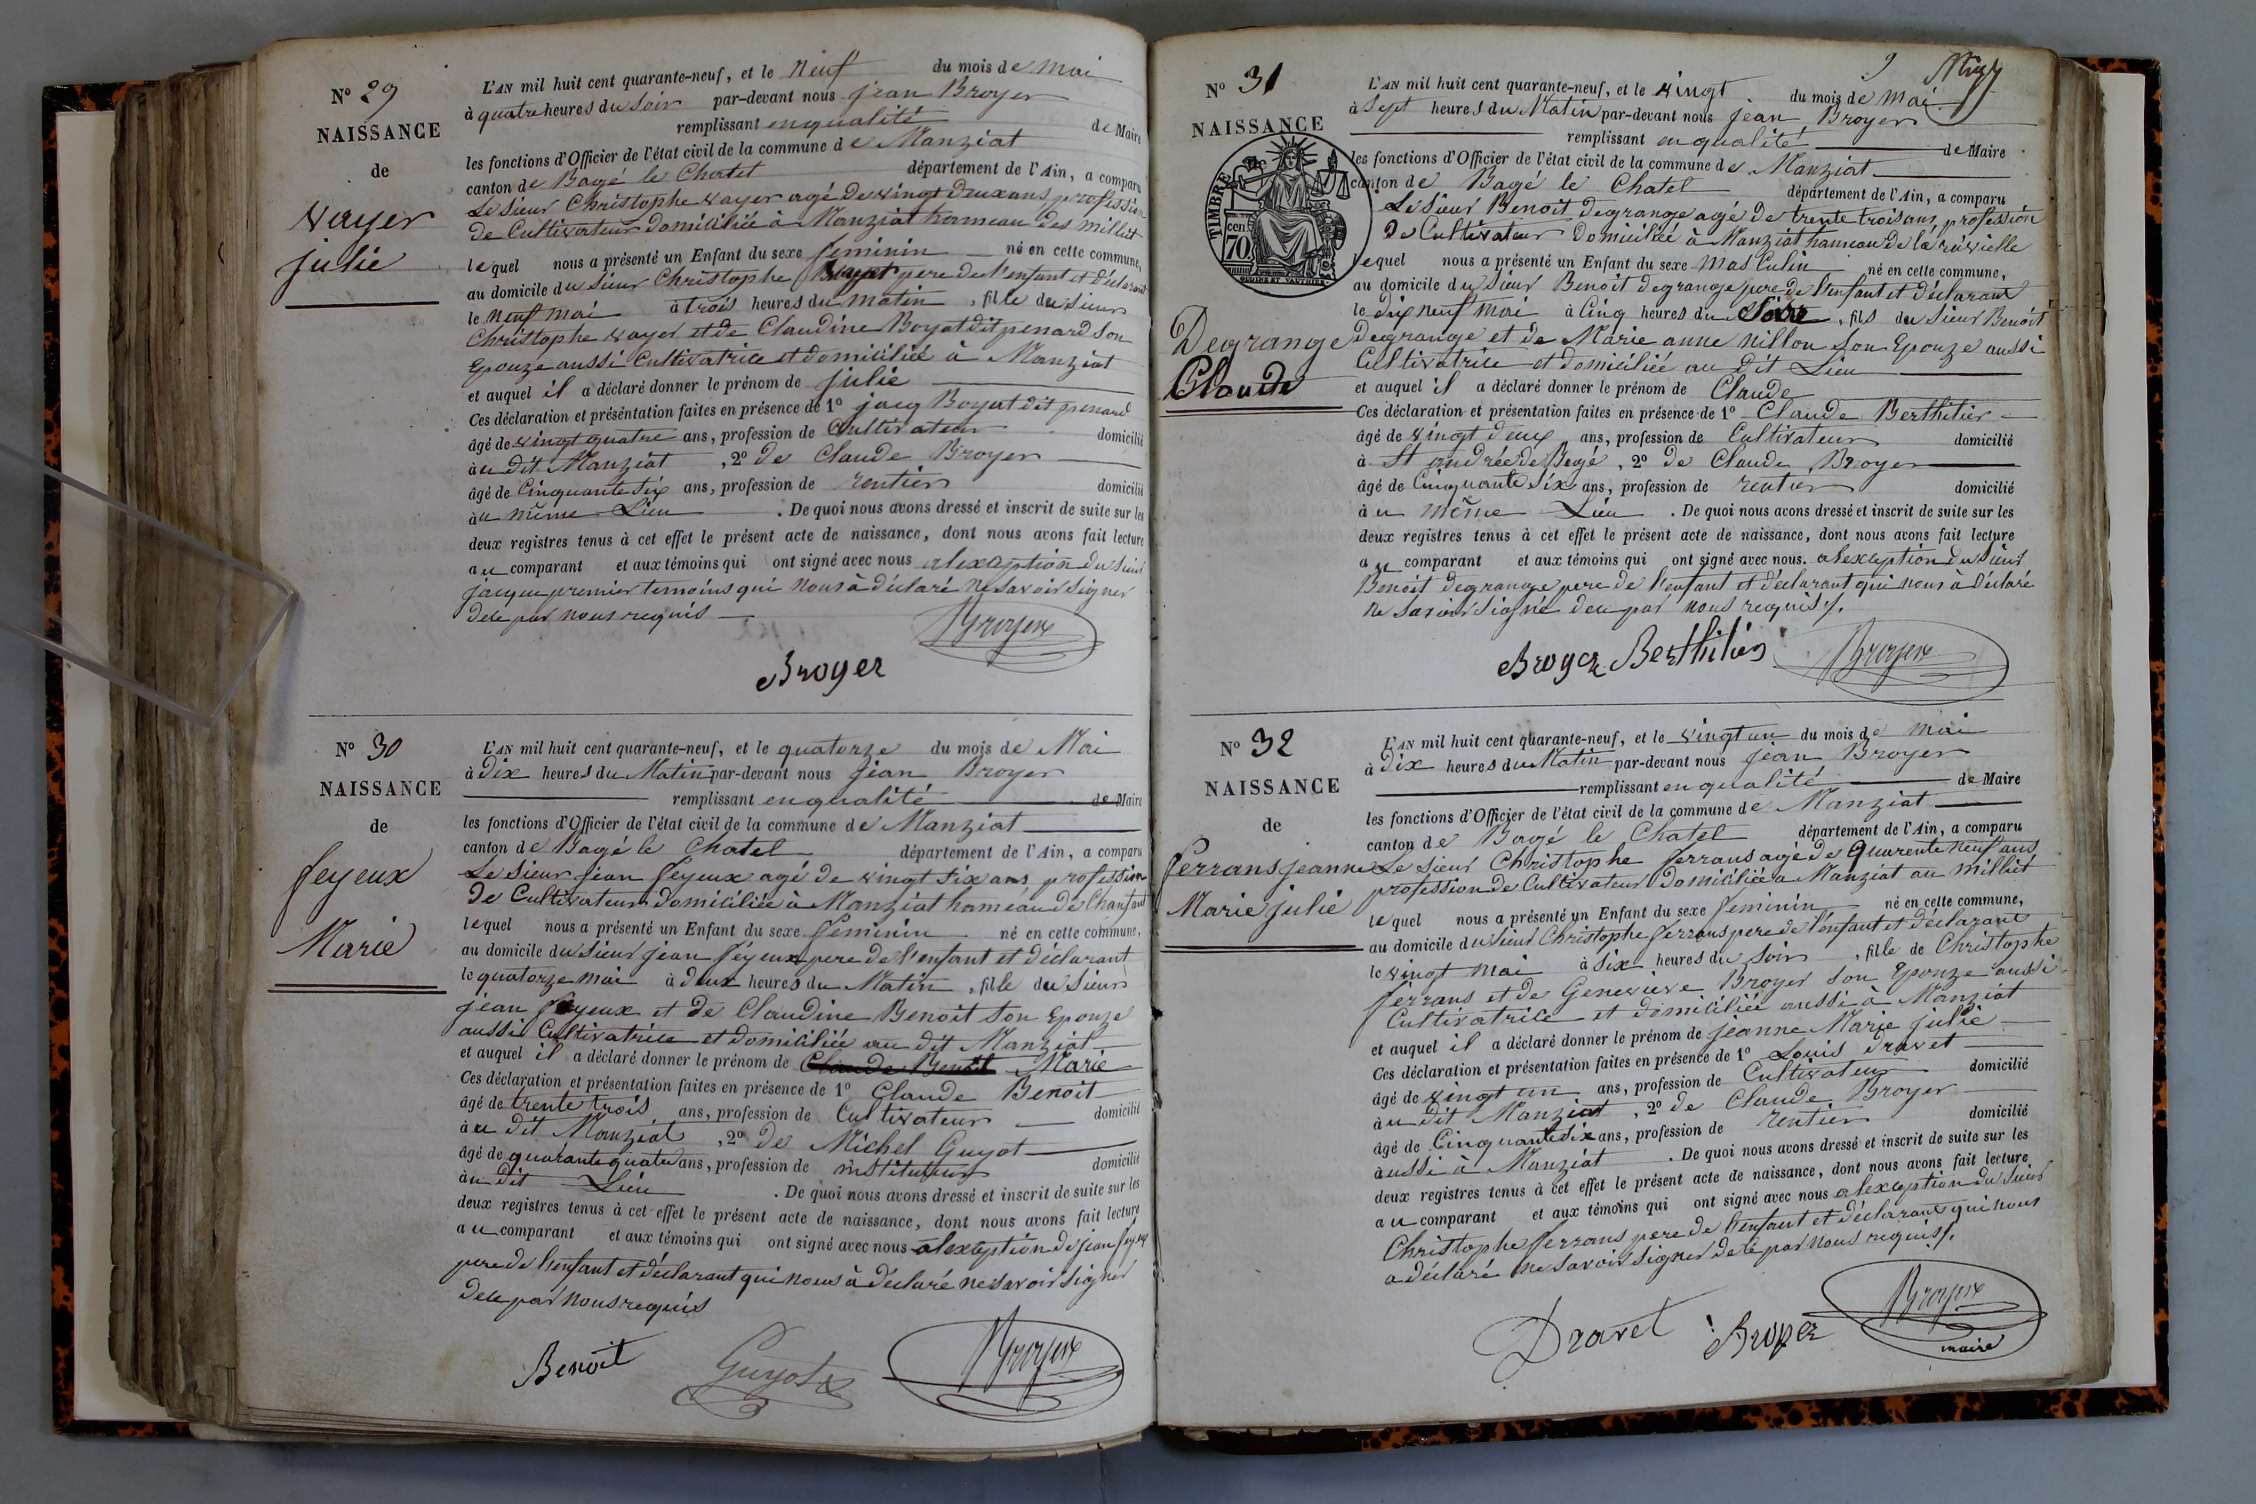 N° 29
NAISSANCE
de
Vayer
julie
L'AN mil huit cent quarante-neuf, et le neuf du mois de mai
à quatre heures du soir par-devant nous jean Broyer
remplissant en qualité de Maire
les fonctions d'Officier de l'état civil de la commune de Manziat
canton de Bagé le Chatel département de l'Ain, a comparu
Le Sieur Christophe Vayer agé de vingt deux ans, profession
de Cultivateur domiciliée à Manziat hameau des millet
lequel nous a présenté un Enfant du sexe feminin né en cette commune,
au domicile du Sieur Christophe pere de l'enfant et déclarant
le neuf mai à trois heures du matin, fille du Sieur
Christophe Vayer et de Claudine Boyat dit penard son
Epouze aussi Cultivatrice et domiciliée à Manziat
et auquel il a déclaré donner le prénom de julie
Ces déclaration et présentation faites en présence de 1° jacq Boyat dit penard
âgé de vingt quatre ans, profession de Cultivateur domicilié
à au dit Manziat, 2° de Claude Broyer
âgé de Cinquante Six ans, profession de rentier domicilié
à u même Lieu . De quoi nous avons dressé et inscrit de suite sur les
deux registres tenus à cet effet le présent acte de naissance, dont nous avons fait lecture
au comparant et aux témoins qui ont signé avec nous alexception du Sieur
jacque premier temoins qui nous à déclaré ne savoir signer
dele par nous requis
Broyer
Broyer
N° 30
NAISSANCE
de
feyeux
Marie
L'AN mil huit cent quarante-neuf, et le quatorze du mois de Mai
à Dix heures du Matin par-devant nous jean Broyer
remplissant en qualité de Maire
les fonctions d'Officier de l'état civil de la commune de Manziat
canton de Bagé le Chatel département de l'Ain, a comparu
Le Sieur jean feyeux agé de vingt Six ans, profession
de Cultivateur domiciliée à Manziat haméau de Chanfant
lequel nous a présenté un Enfant du sexe feminin né en cette commune,
au domicile du Sieur jean féyeux pere de l'enfant et déclarant
le quatorze mai à deux heures du Matin, fille du Sieur
jean feyeux et de Claudine Benoit Son Epouze
aussi Cultivatrice et domiciliée au dit Manziat
et auquel il a déclaré donner le prénom de Claude Benoit Marie
Ces déclaration et présentation faites en présence de 1° Claude Benoit
âgé de trente trois ans, profession de Cultivateur domicilié
à u dit Manziat, 2° de Michel Guyot
âgé de quarante quatre ans, profession de instituteur domicilié
à u dit Lieu . De quoi nous avons dressé et inscrit de suite sur les
deux registres tenus à cet effet le présent acte de naissance, dont nous avons fait lecture
au comparant et aux témoins qui ont signé avec nous alexception de jean feyeux
pere de l'enfant et déclarant qui nous à déclaré ne savoir signer
dele par nous requis
Benoit Guyot Broyer
9
N° 31
NAISSANCE
TIMBRE
70 cen
Degrange
Claude
L'AN mil huit cent quarante-neuf, et le vingt du mois de mai
à Sept heures du Matin par-devant nous jean Broyer
remplissant en qualité de Maire
les fonctions d'Officier de l'état civil de la commune de Manziat
canton de Bagé le Chatel département de l'Ain, a comparu
Le Sieur Benoit Degrange agé de trente trois ans, profession
de Cultivateur domiciliée à Manziat hameau de la
lequel nous a présenté un Enfant du sexe masculin né en cette commune,
au domicile du Sieur Benoit degrange pere de l'enfant et déclarant
le dix neuf mai à Cinq heures du Soir, fils du Sieur Benoit
Degrange et de Marie anne nillon son Epouze aussi
Cultivatrice et domiciliée au Dit Lieu
et auquel il a déclaré donner le prénom de Claude
Ces déclaration et présentation faites en présence de 1° Claude Berthilier
âgé de vingt deux ans, profession de Cultivateur domicilié
à St andrée de Bagé, 2° de Claude Broyer
âgé de Cinquante Six ans, profession de rentier domicilié
à u même Lieu . De quoi nous avons dressé et inscrit de suite sur les
deux registres tenus à cet effet le présent acte de naissance, dont nous avons fait lecture
au comparant et aux témoins qui ont signé avec nous. alexception du Sieur
Benoit degrange pere de l'enfant et déclarant qui nous à déclaré
ne savoir signé dele par nous requis
Broyer Berthilier Broyer
N° 32
NAISSANCE
de
ferrans jeanne
Marie julie
L'AN mil huit cent quarante-neuf, et le vingt un du mois de mai
à Dix heures du Matin par-devant nous jean Broyer
remplissant en qualité de Maire
les fonctions d'Officier de l'état civil de la commune de Manziat
canton de Bagé le Chatel département de l'Ain, a comparu
Le Sieur Christophe ferrans agé de quarente neuf ans
profession de Cultivateur domiciliée a Manziat au milliet
lequel nous a présenté un Enfant du sexe feminin né en cette commune,
au domicile du Sieur Christophe ferrans pere de l'enfant et déclarant
le vingt mai à Six heures du Soir, fille de Christophe
ferrans et de Genevieve Broyer Son Epouze aussi
Cultivatrice et domiciliée aussi à Manziat
et auquel il a déclaré donner le prénom de jeanne Marie julie
Ces déclaration et présentation faites en présence de 1° Louis Dravet
âgé de vingt un ans, profession de Cultivateur domicilié
à u dit Manziat, 2° de Claude Broyer
âgé de Cinquante Six ans, profession de rentier domicilié
à ussi à Manziat . De quoi nous avons dressé et inscrit de suite sur les
deux registres tenus à cet effet le présent acte de naissance, dont nous avons fait lecture
au comparant et aux témoins qui ont signé avec nous alexception du Sieur
Christophe ferrans pere de l'enfant et déclarant qui nous
a déclaré ne savoir signer dele par nous requis
Dravet Broyer Broyer
maire